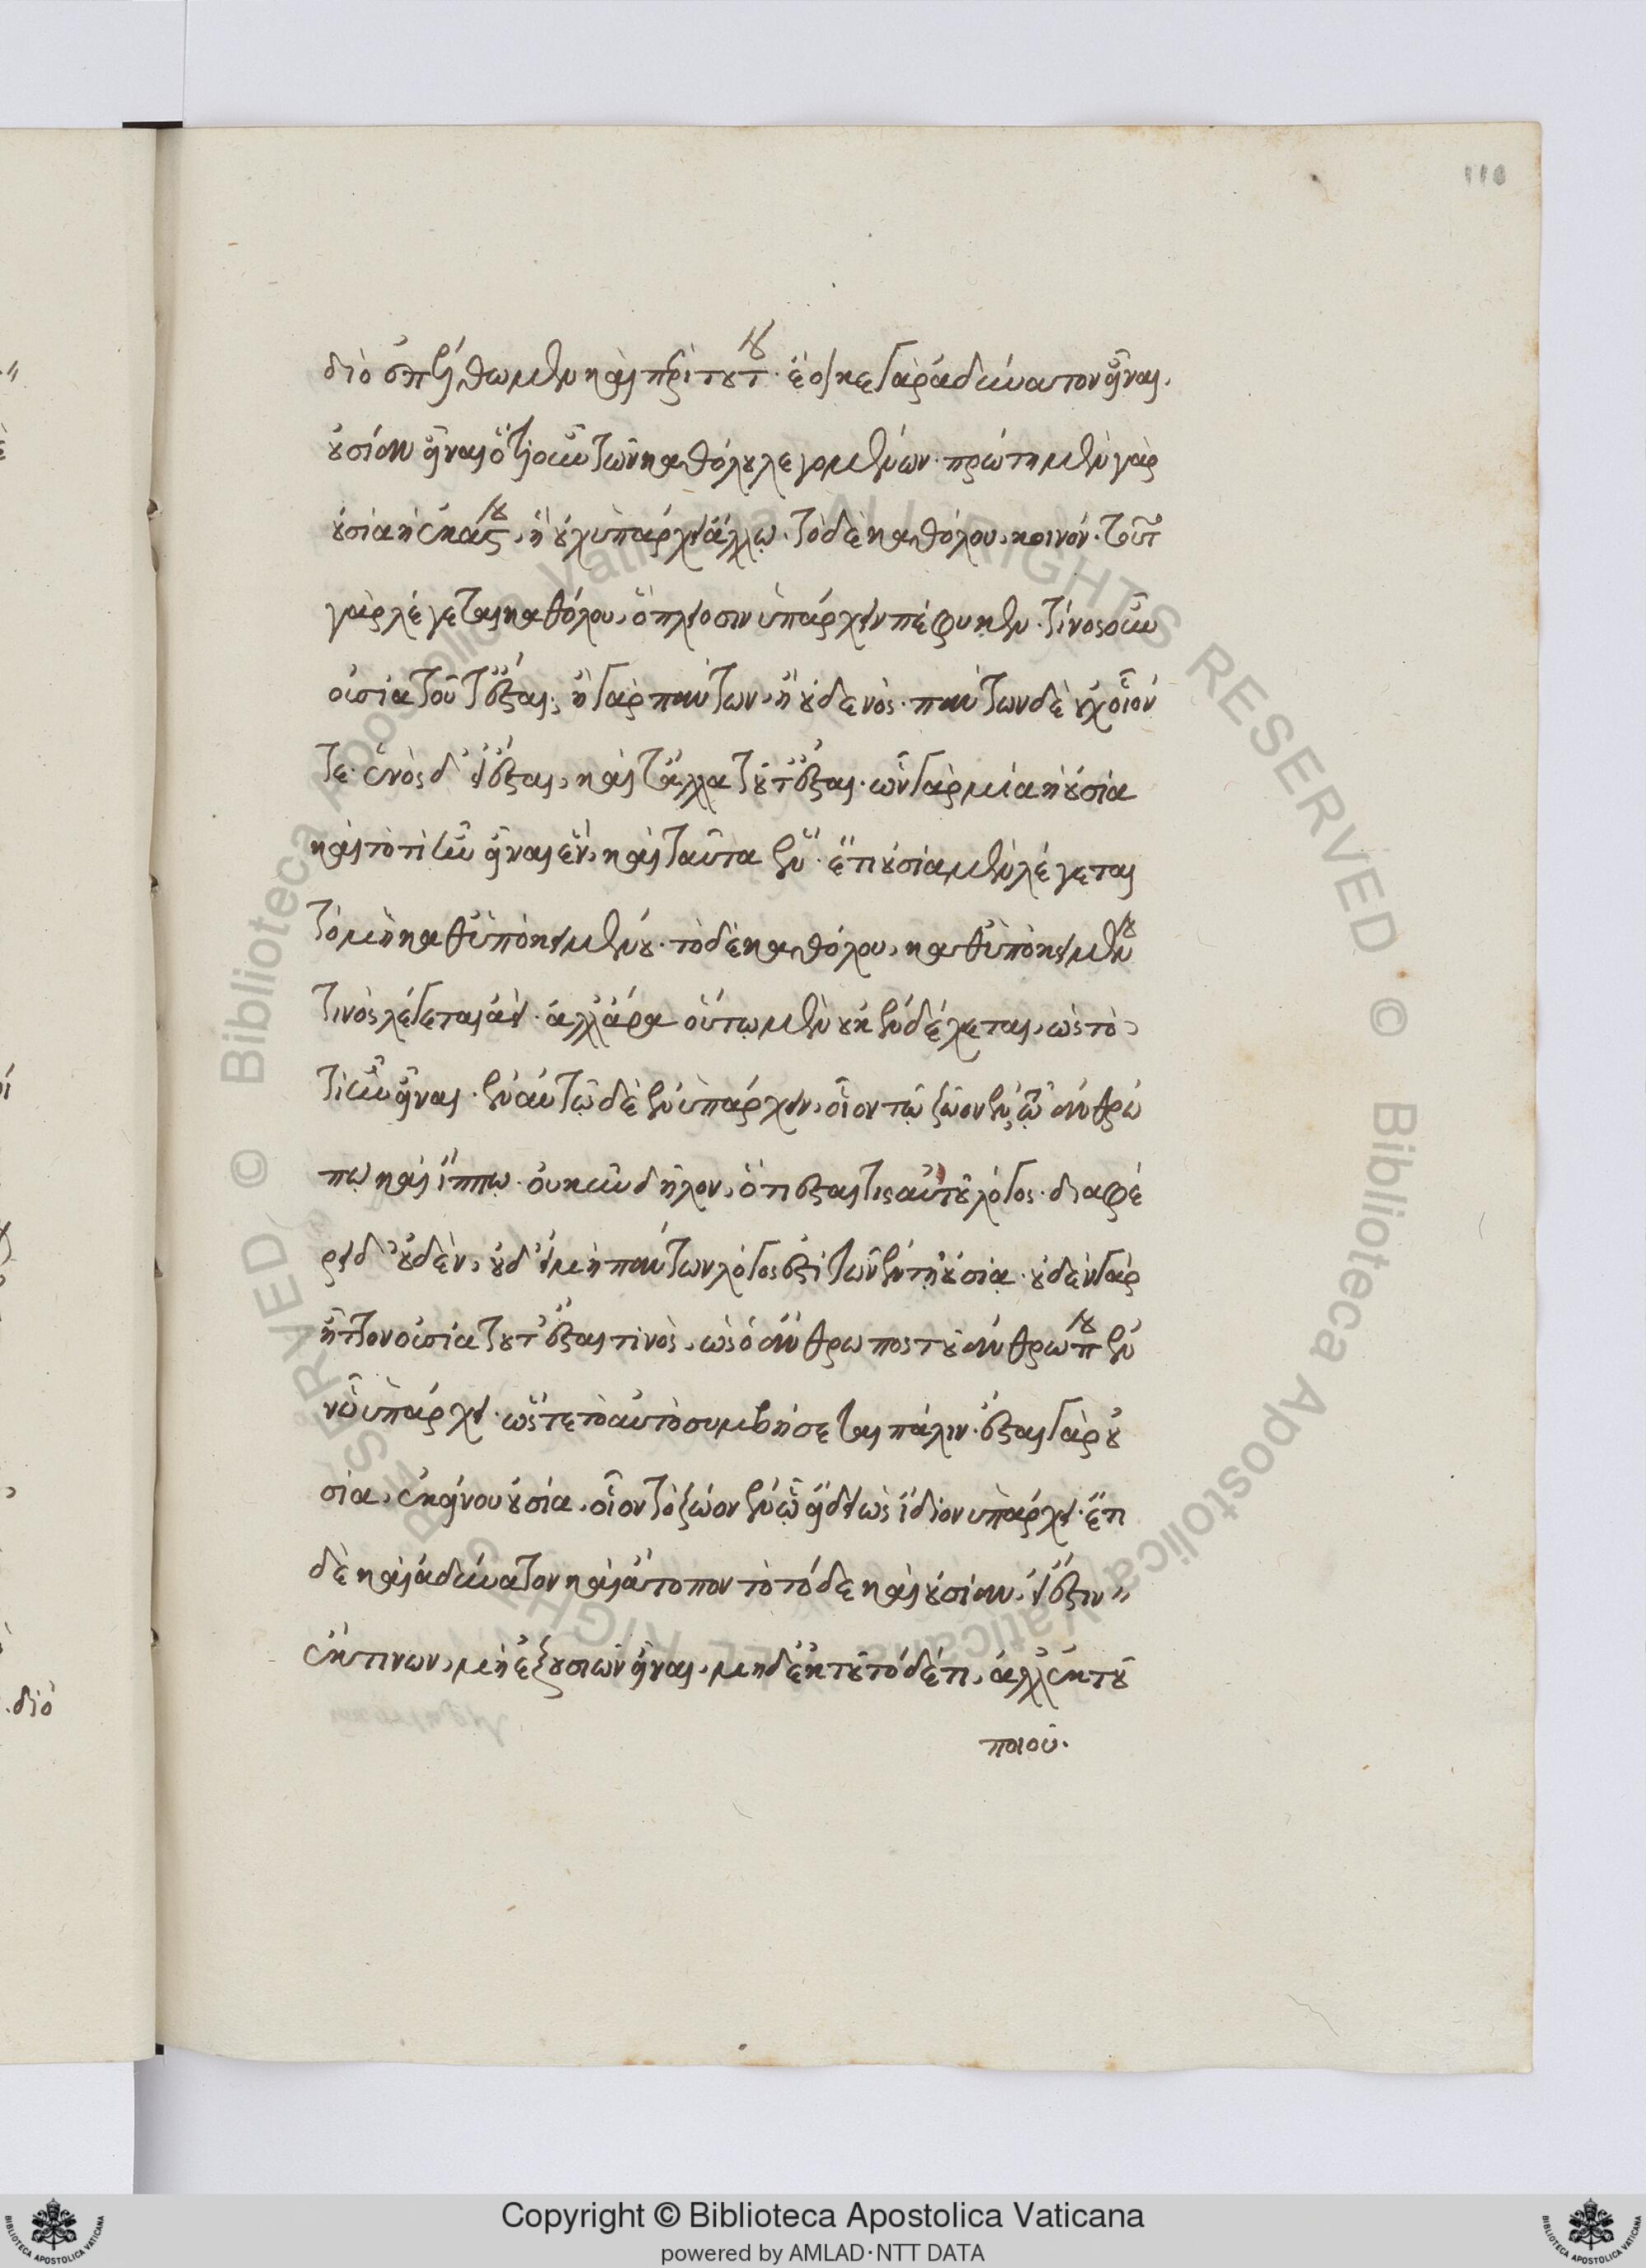 110
διὸ ἐπέλθωμεν καὶ περὶ τούτου· ἔοικε γὰρ ἀδύνατον εἶναι,
οὐσίαν εἶναι ὁτιοῦν τῶν καθόλου λεγομένων· πρώτη μὲν γὰρ
οὐσία ἡ ἑκάστου, ἣ οὐχ ὑπάρχει ἄλλῳ· τὸ δὲ καθόλου, κοινόν· τοῦτο
γὰρ λέγεται καθόλου, ὃ πλείοσιν ὑπάρχειν πέφυκεν· τίνος οὖν
οὐσία τοῦτ' ἔσται; ἢ γὰρ πάντων, ἢ οὐδενός· πάντων δὲ οὐχ οἷόν
τε· ἑνὸς δ' εἰ ἔσται, καὶ τἄλλα τοῦτ' ἔσται· ὧν γὰρ μία ἡ οὐσία
καὶ τὸ τί ἦν εἶναι ἕν, καὶ ταῦτα ἕν· ἔτι οὐσία μὲν λέγεται
τὸ μὴ καθ' ὑποκειμένου· τὸ δὲ καθόλου, καθ' ὑποκειμένου
τινὸς λέγεται ἀεί· ἀλλ' ἄρα οὕτω μὲν οὐκ ἐνδέχεται, ὡς τὸ
τί ἦν εἶναι· ἐν αὐτῷ δὲ ἐνυπάρχειν, οἷον τῷ ζῷον ἐν τῷ ἀνθρώ
πῳ καὶ ἵππῳ· οὐκοῦν δῆλον, ὅτι ἔσται τις αὐτοῦ λόγος· διαφέ
ρει δ' οὐδὲν, οὐδ' εἰ μὴ πάντων λόγος ἐστὶ τῶν ἐν τῇ οὐσίᾳ· οὐδὲν γὰρ
ἧττον οὐσία τοῦτ' ἔσται τινὸς, ὡς ὁ ἄνθρωπος τοῦ ἀνθρώπου ἐν
ᾧ ὑπάρχει· ὥστε τὸ αὐτὸ συμβήσεται πάλιν· ἔσται γὰρ οὐ
σία, ἐκείνου οὐσία, οἷον τὸ ζῷον ἐν ᾧ εἴδει ὡς ἴδιον ὑπάρχει· ἔτι
δὲ καὶ ἀδύνατον καὶ ἄτοπον τὸ τόδε καὶ οὐσίαν, εἰ ἔστιν
ἔκ τινων, μὴ ἐξ οὐσιῶν εἶναι, μηδ' ἐκ τοῦ τόδε τι, ἀλλ' ἐκ τοῦ
ποιοῦ.
διὸ
Copyright © Biblioteca Apostolica Vaticana
powered by AMLAD·NTT DATA